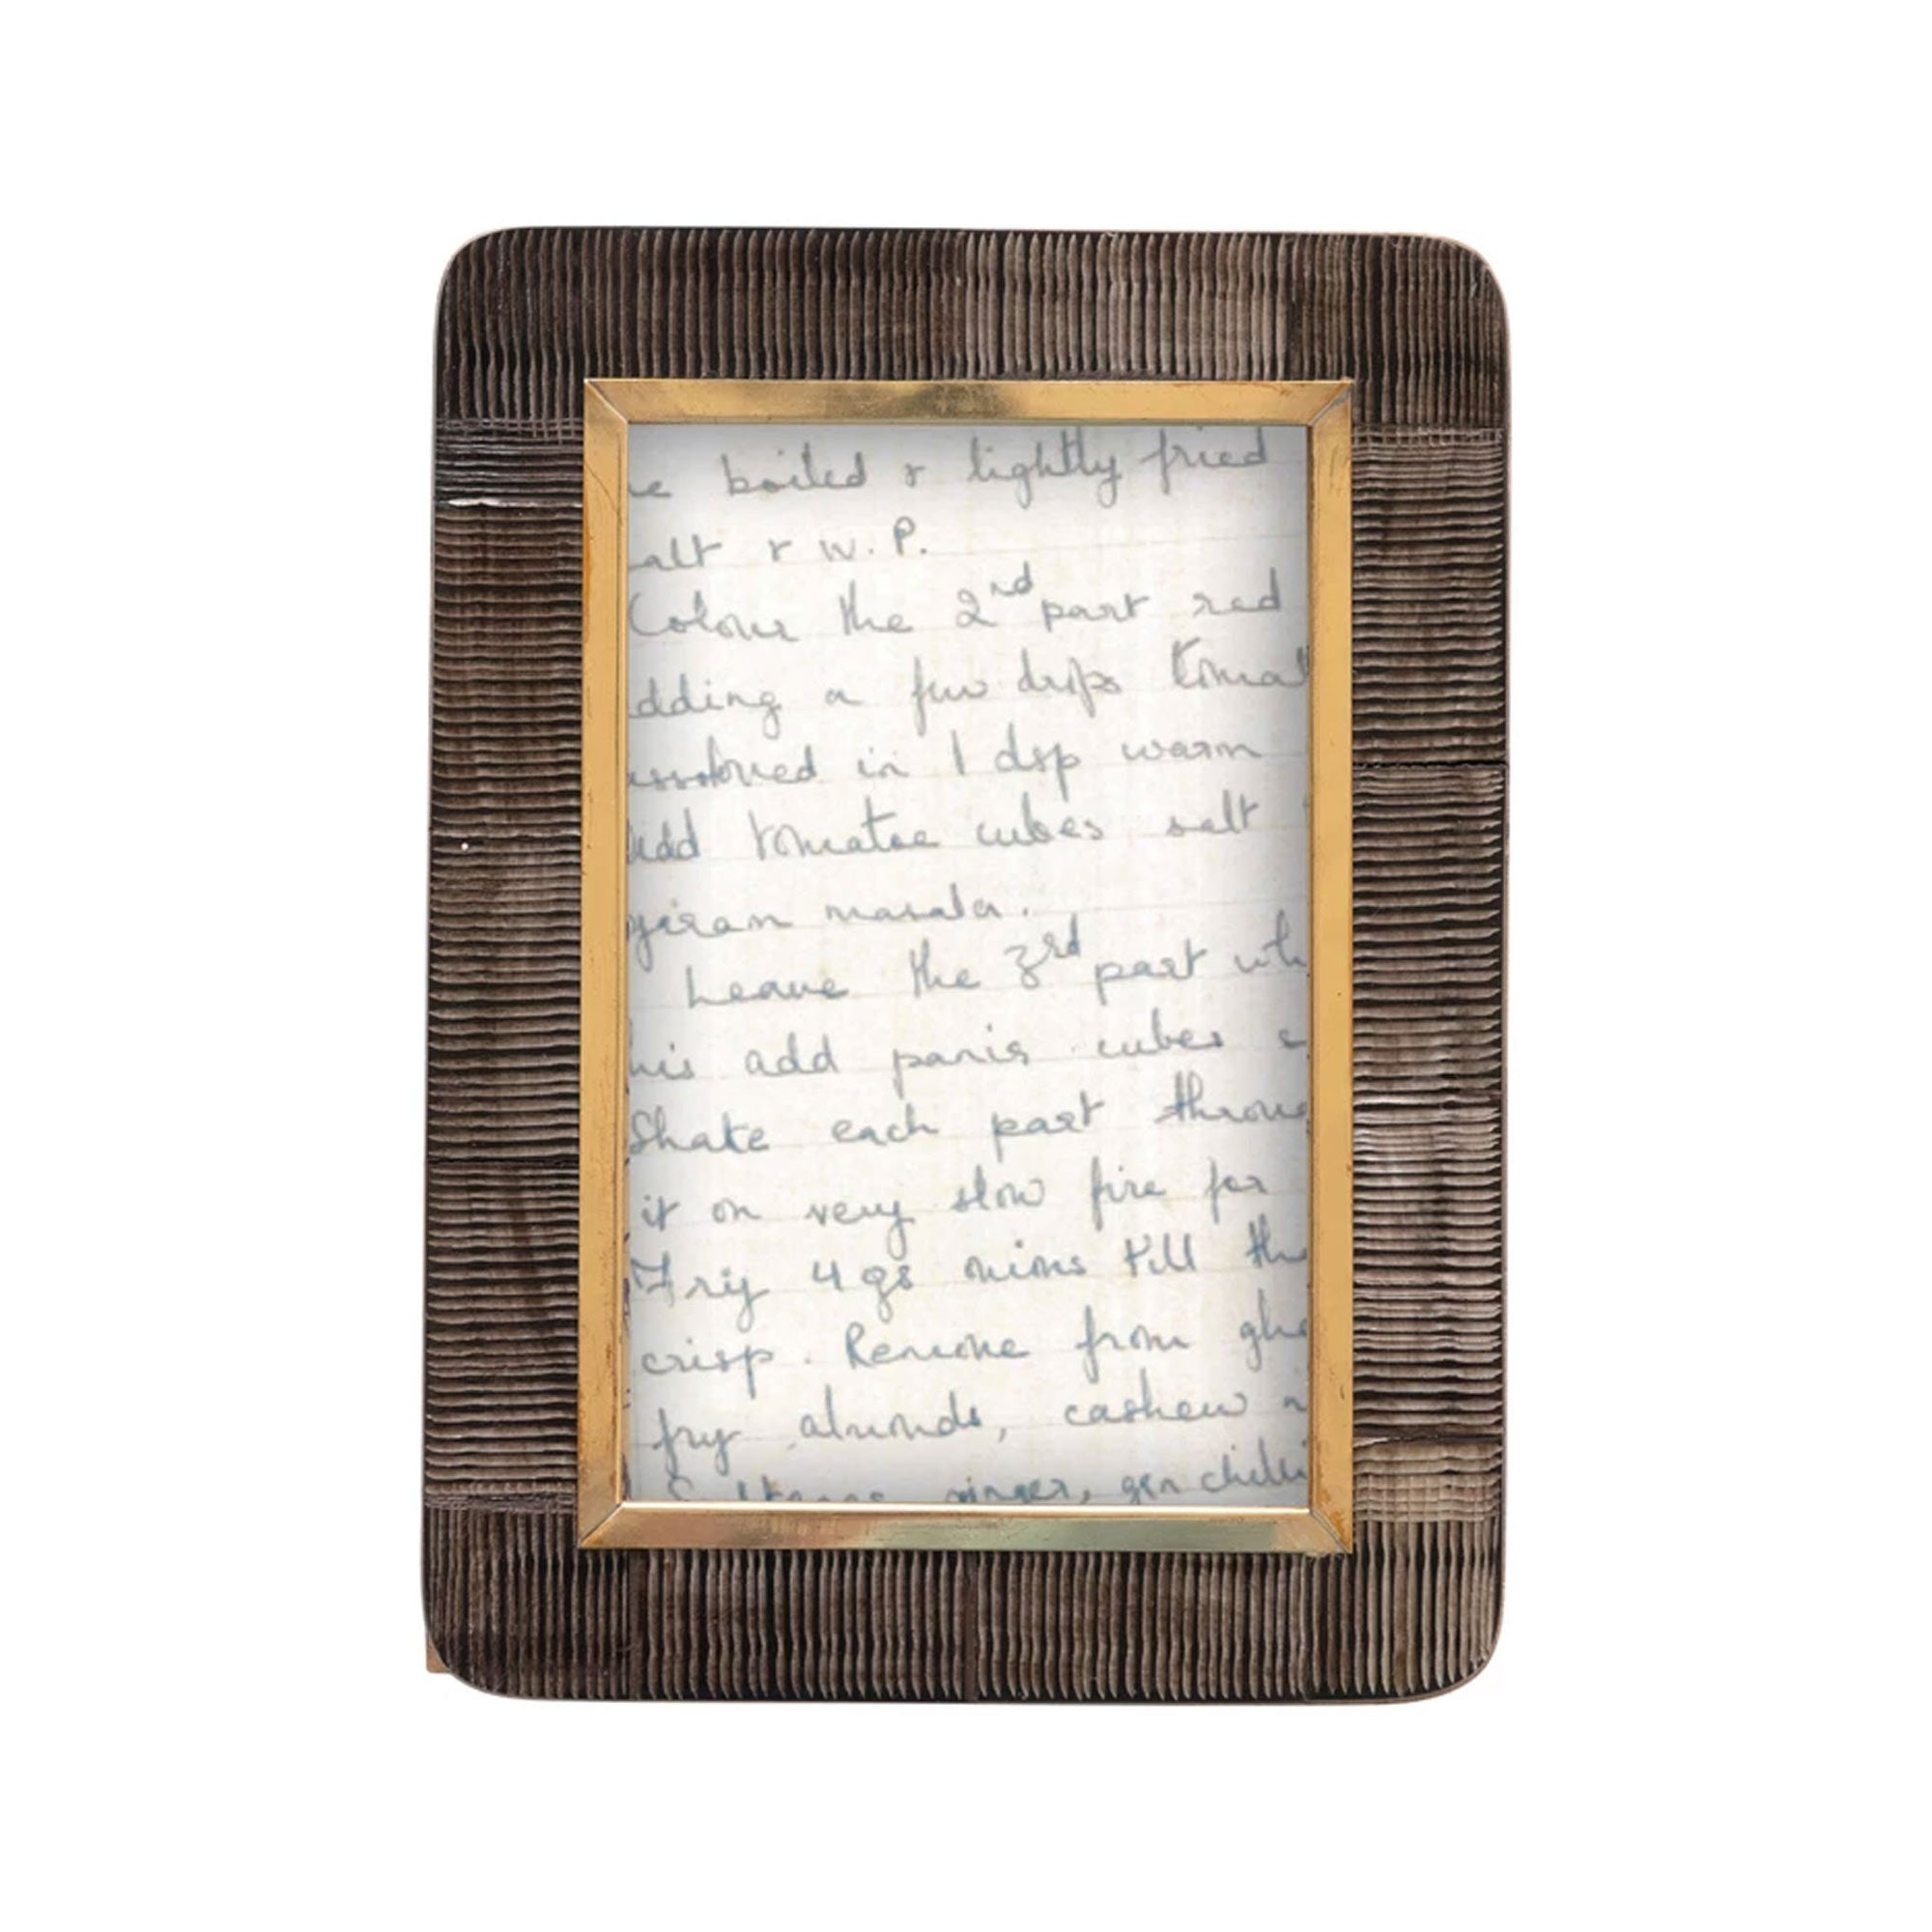 e boiled & lightly fried
alt & W.P.
Colour the 2nd part red
dding a few drops tomat
issolved in 1 dsp warm
Add tomatoe cubes salt
garam masala.
Leave the 3rd part wh
his add panir cubes
Shake each part throug
it on very slow fire for
Fry 4 gs nions till the
crisp. Remove from ghe
fry almonds, cashew n
ginger, grn chilli